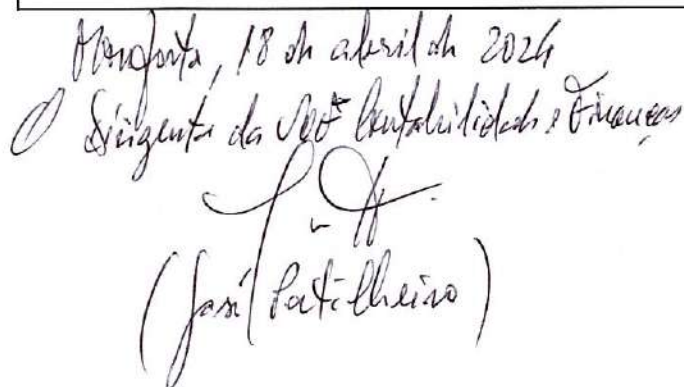 Monforte, 18 de abril de 2024
O Dirigente da UOF Contabilidade e Finanças
(José Cartilheiro)